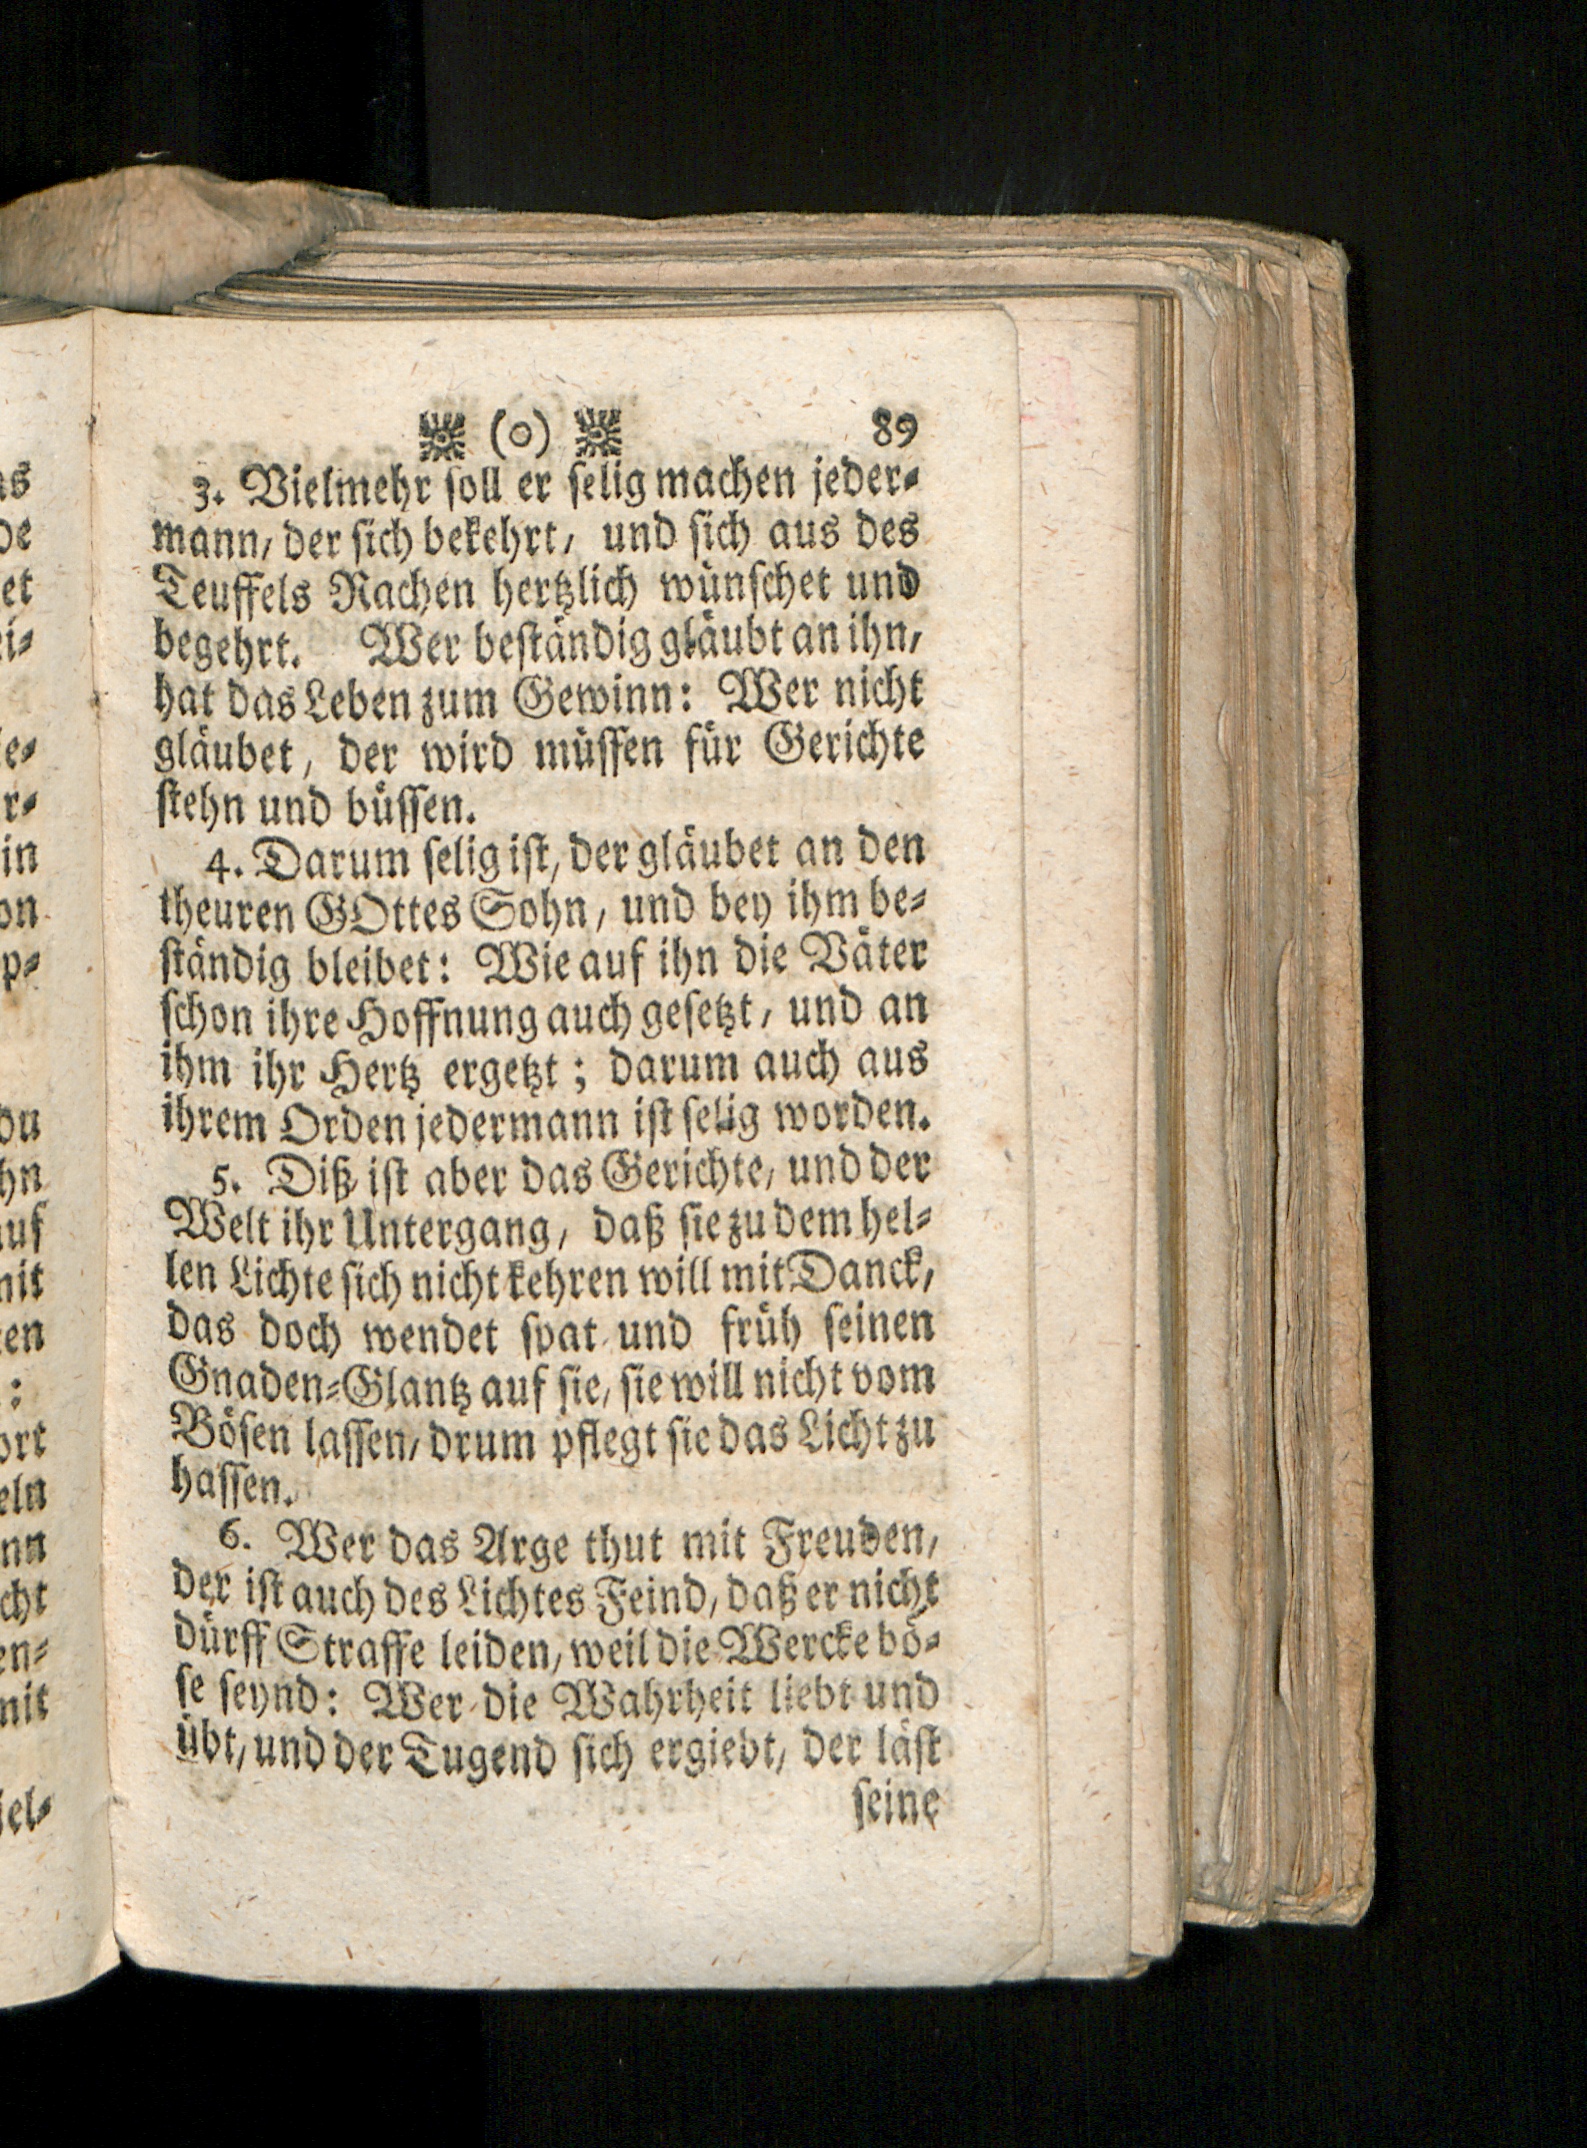 (o) 89
3. Vielmehr soll er selig machen jeder-
mann, der sich bekehrt, und sich aus des
Teuffels Rachen hertzlich wünschet und
begehrt. Wer beständig gläubt an ihn,
hat das Leben zum Gewinn: Wer nicht
gläubet, der wird müssen für Gerichte
stehn und büssen.
4. Darum selig ist, der gläubet an den
theuren GOttes Sohn, und bey ihm be-
ständig bleibet: Wie auf ihn die Väter
schon ihre Hoffnung auch gesetzt, und an
ihm ihr Hertz ergetzt; darum auch aus
ihrem Orden jedermann ist selig worden.
5. Diß ist aber das Gerichte, und der
Welt ihr Untergang, daß sie zu dem hel-
len Lichte sich nicht kehren will mit Danck,
das doch wendet spat und früh seinen
Gnaden-Glantz auf sie, sie will nicht vom
Bösen lassen, drum pflegt sie das Licht zu
hassen.
6. Wer das Arge thut mit Freuden,
der ist auch des Lichtes Feind, daß er nicht
dürff Straffe leiden, weil die Wercke bö-
se seynd: Wer die Wahrheit liebt und
übt, und der Tugend sich ergiebt, der läst
seine